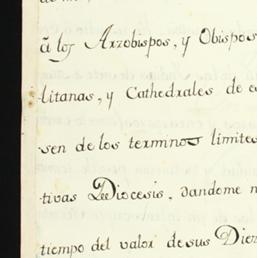 à los Arzobispos, y Obispos
litanas, y Cathedrales de
sen de los terminos limites
tivas Diocesis, dandome
tiempo del valor de sus